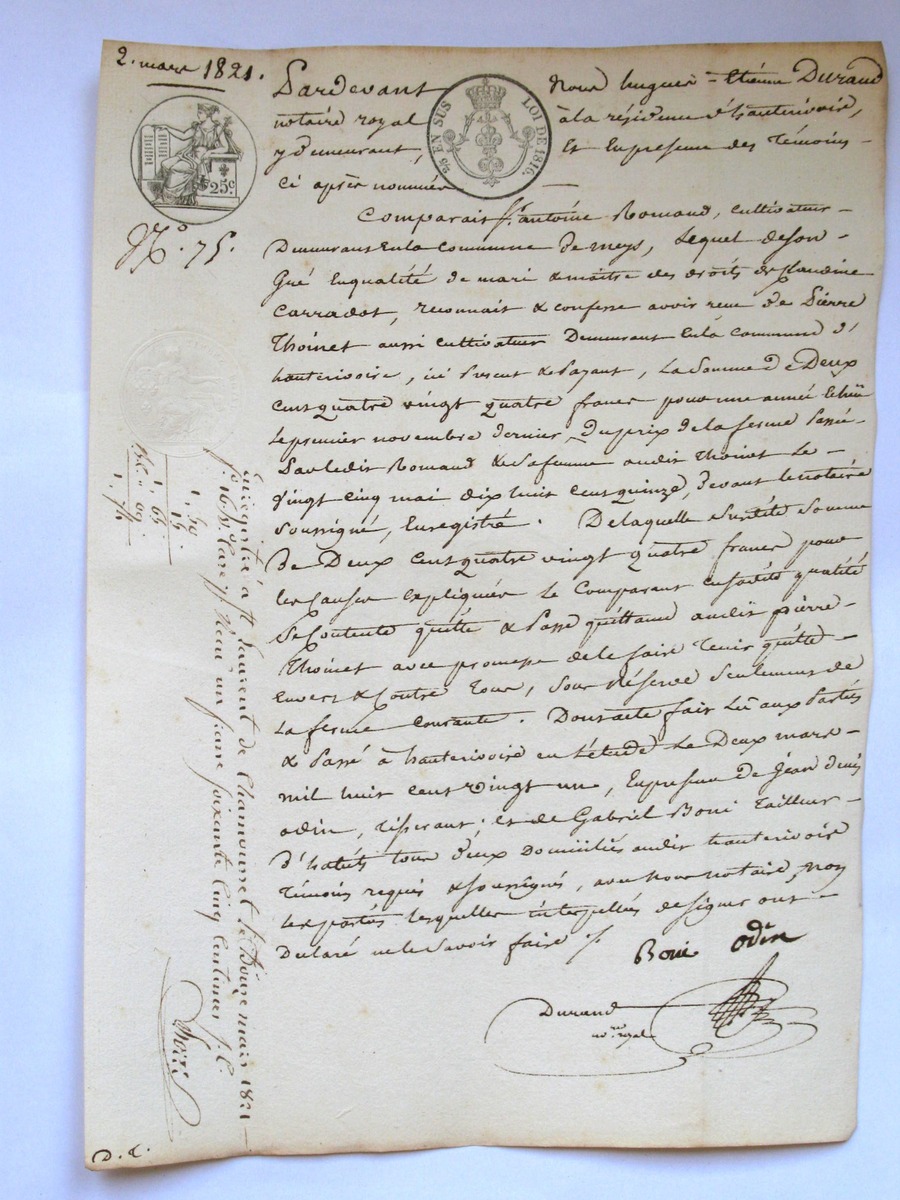 2. mars 1821.
Pardevant Nous hugues = Etienne Durand
notaire royal à la résidence d'hauterivoire,
y demeurant, Et En presence des Témoins
Ci après nommés
25c.
¼ EN SUS LOI DE 1816.
N.° 75.
Comparais S.r antoine Romand, cultivateur
Demeurant En la commune de meys, Lequel de son
Gré En qualité de mari & maitre des droits de Claudine
Carradot, reconnait & confesse avoir recu de Pierre
Thoinet aussi cultivateur Demeurant En la commune d'
hauterivoire, ici Présent & Payant, La Somme de Deux
Cent quatre vingt quatre francs pour une année Echüe
le premier novembre dernier, du prix de la ferme Passée
Par ledit Romand & Sa femme audit Thoinet Le
Vingt Cinq mai dix huit Cent quinze, devant le notaire
Soussigné, Enregistré. De laquelle Susdite Somme
de Deux Cent quatre vingt quatre francs pour
les Causes Expliquées Le Comparant en sadite qualité
Se Contente quitte & Passe quittance audit pierre
Thoinet avec promesse de le faire Tenir quitte
Envers & Contre Tous, Sous Réserve Seulement de
La ferme Courante. Dont acte fait Lû aux Parties
& Passé à hauterivoire en l'étude Le Deux mars
mil huit Cent vingt un, En présence de Jean denis
odin, Tisserant; et de Gabriel Boni Tailleur
d'habits tous deux Domiciliés audit hauterivoire
Témoins requis & Soussignés, avec Nous notaire, non
Les parties lesquelles interpellées de signer ont
Declaré ne le Savoir faire ./.
Boni odin
Durand
no.re royal
1, 50
15
1, 65
09
1, 74
Enregistré à St Laurent de Chamousset le Douze mars 1821
f.° 165 Reçu un franc soixante Cinq Centimes
D. C.